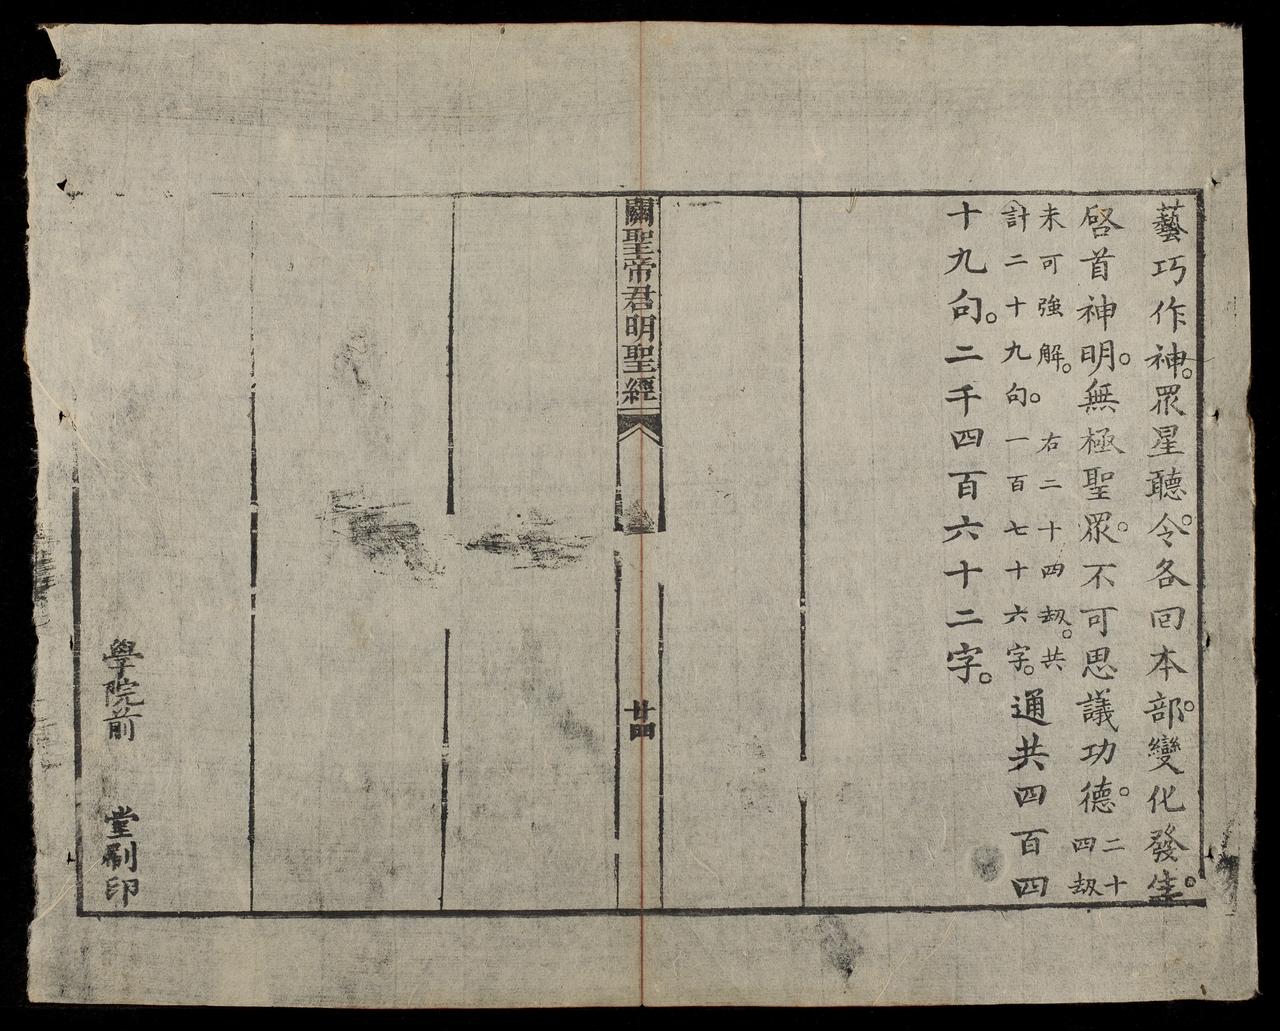 藝巧作神。眾星聽令。各回本部。變化發生。
啓首神明。無極聖眾。不可思議功德。二十四刼
未可強解。右二十四刼。共
計二十九句。一百七十六字。通共四百四
十九句。二千四百六十二字。
關聖帝君明聖經
廿四
學院前 堂刷印